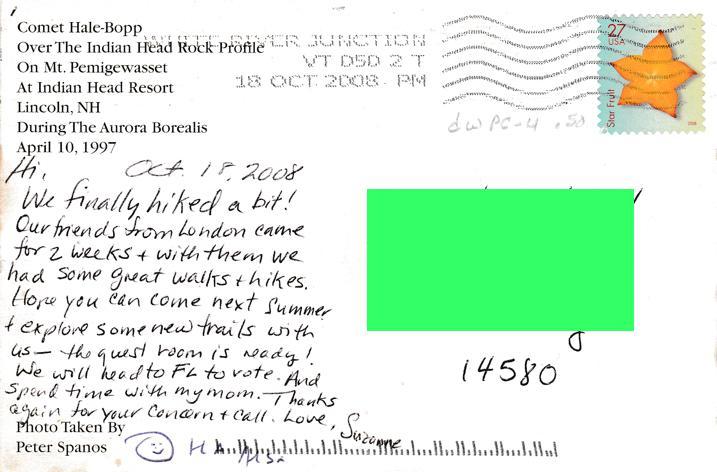 Comet Hale-Bopp
Over The Indian Head Rock Profile
On Mt. Pemigewasset
At Indian Head Resort
Lincoln, NH
During The Aurora Borealis
April 10, 1997
WHITE RIVER JUNCTION
VT 050 2 T
18 OCT 2008 PM
27
USA
Star Fruit
2008
dwPC-4 .50
Hi, Oct. 18, 2008
We finally hiked a bit!
Our friends from London came
for 2 weeks + with them we
had some great walks + hikes.
Hope you can come next summer
+ explore some new trails with
us — the guest room is ready!
We will head to FL to vote. And
spend time with my mom. Thanks
again for your concern + call. Love,
Suzanne
14580
Photo Taken By
Peter Spanos